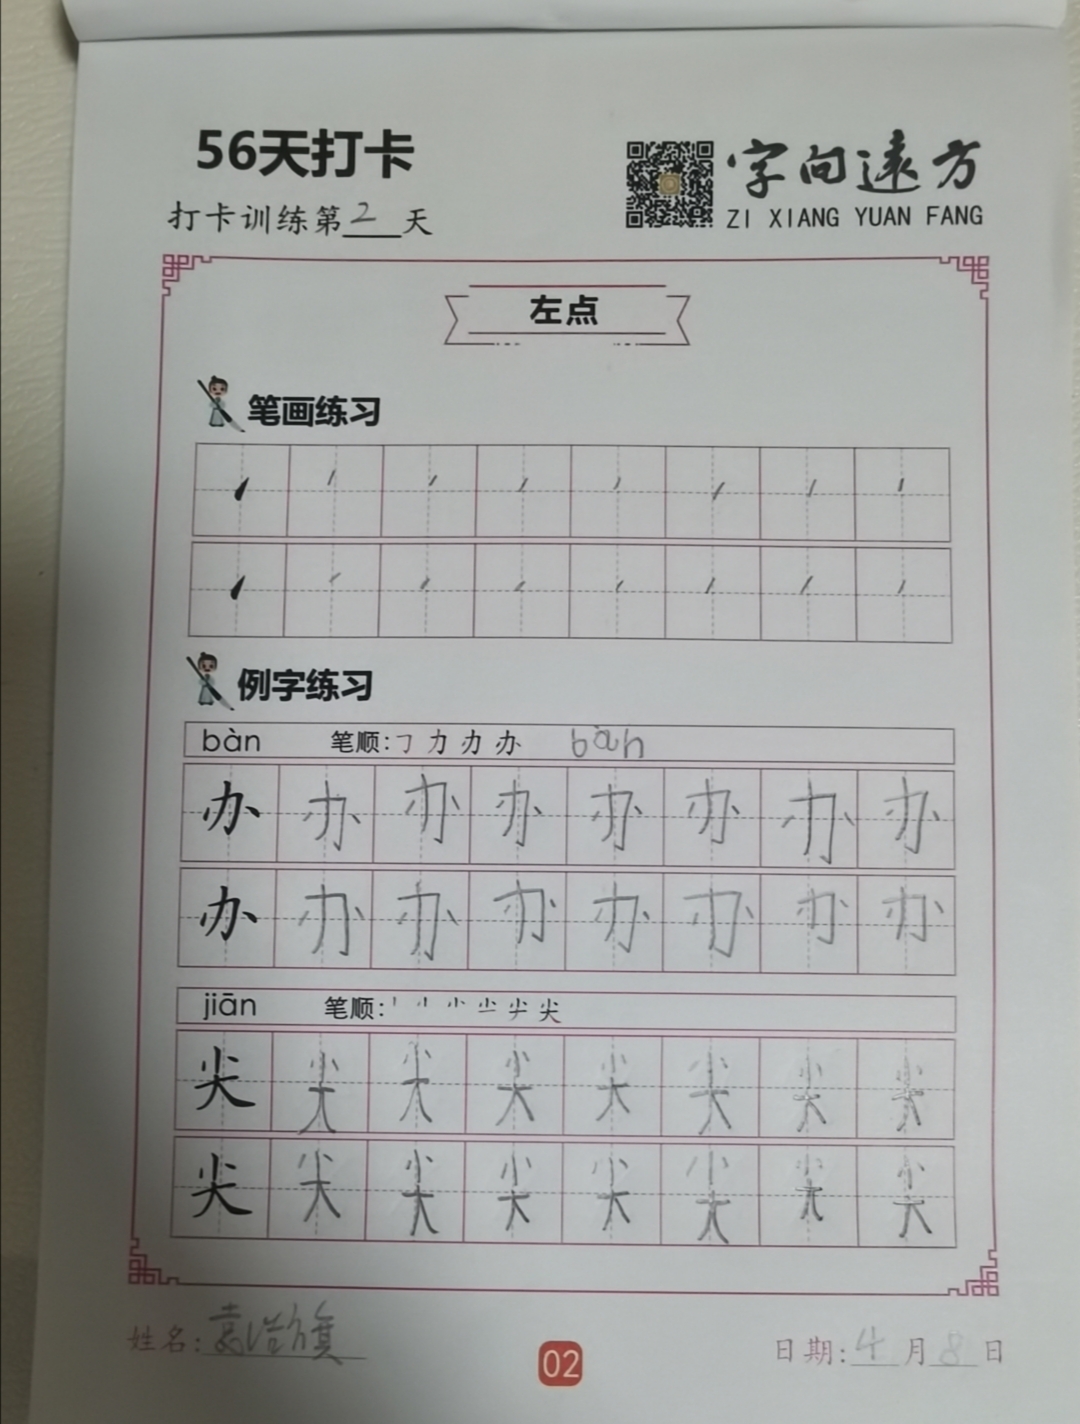 56天打卡
字向远方
打卡训练第2天
ZI XIANG YUAN FANG
左点
笔画练习
例字练习
bàn 笔顺:㇆ 力 力 办 bàn
办 办 办 办 办 办 办 办
办 办 办 办 办 办 办 办
jiān 笔顺:尖
尖 尖 尖 尖 尖 尖 尖 尖
尖 尖 尖 尖 尖 尖 尖 尖
姓名:袁浩旗
02
日期:4月8日